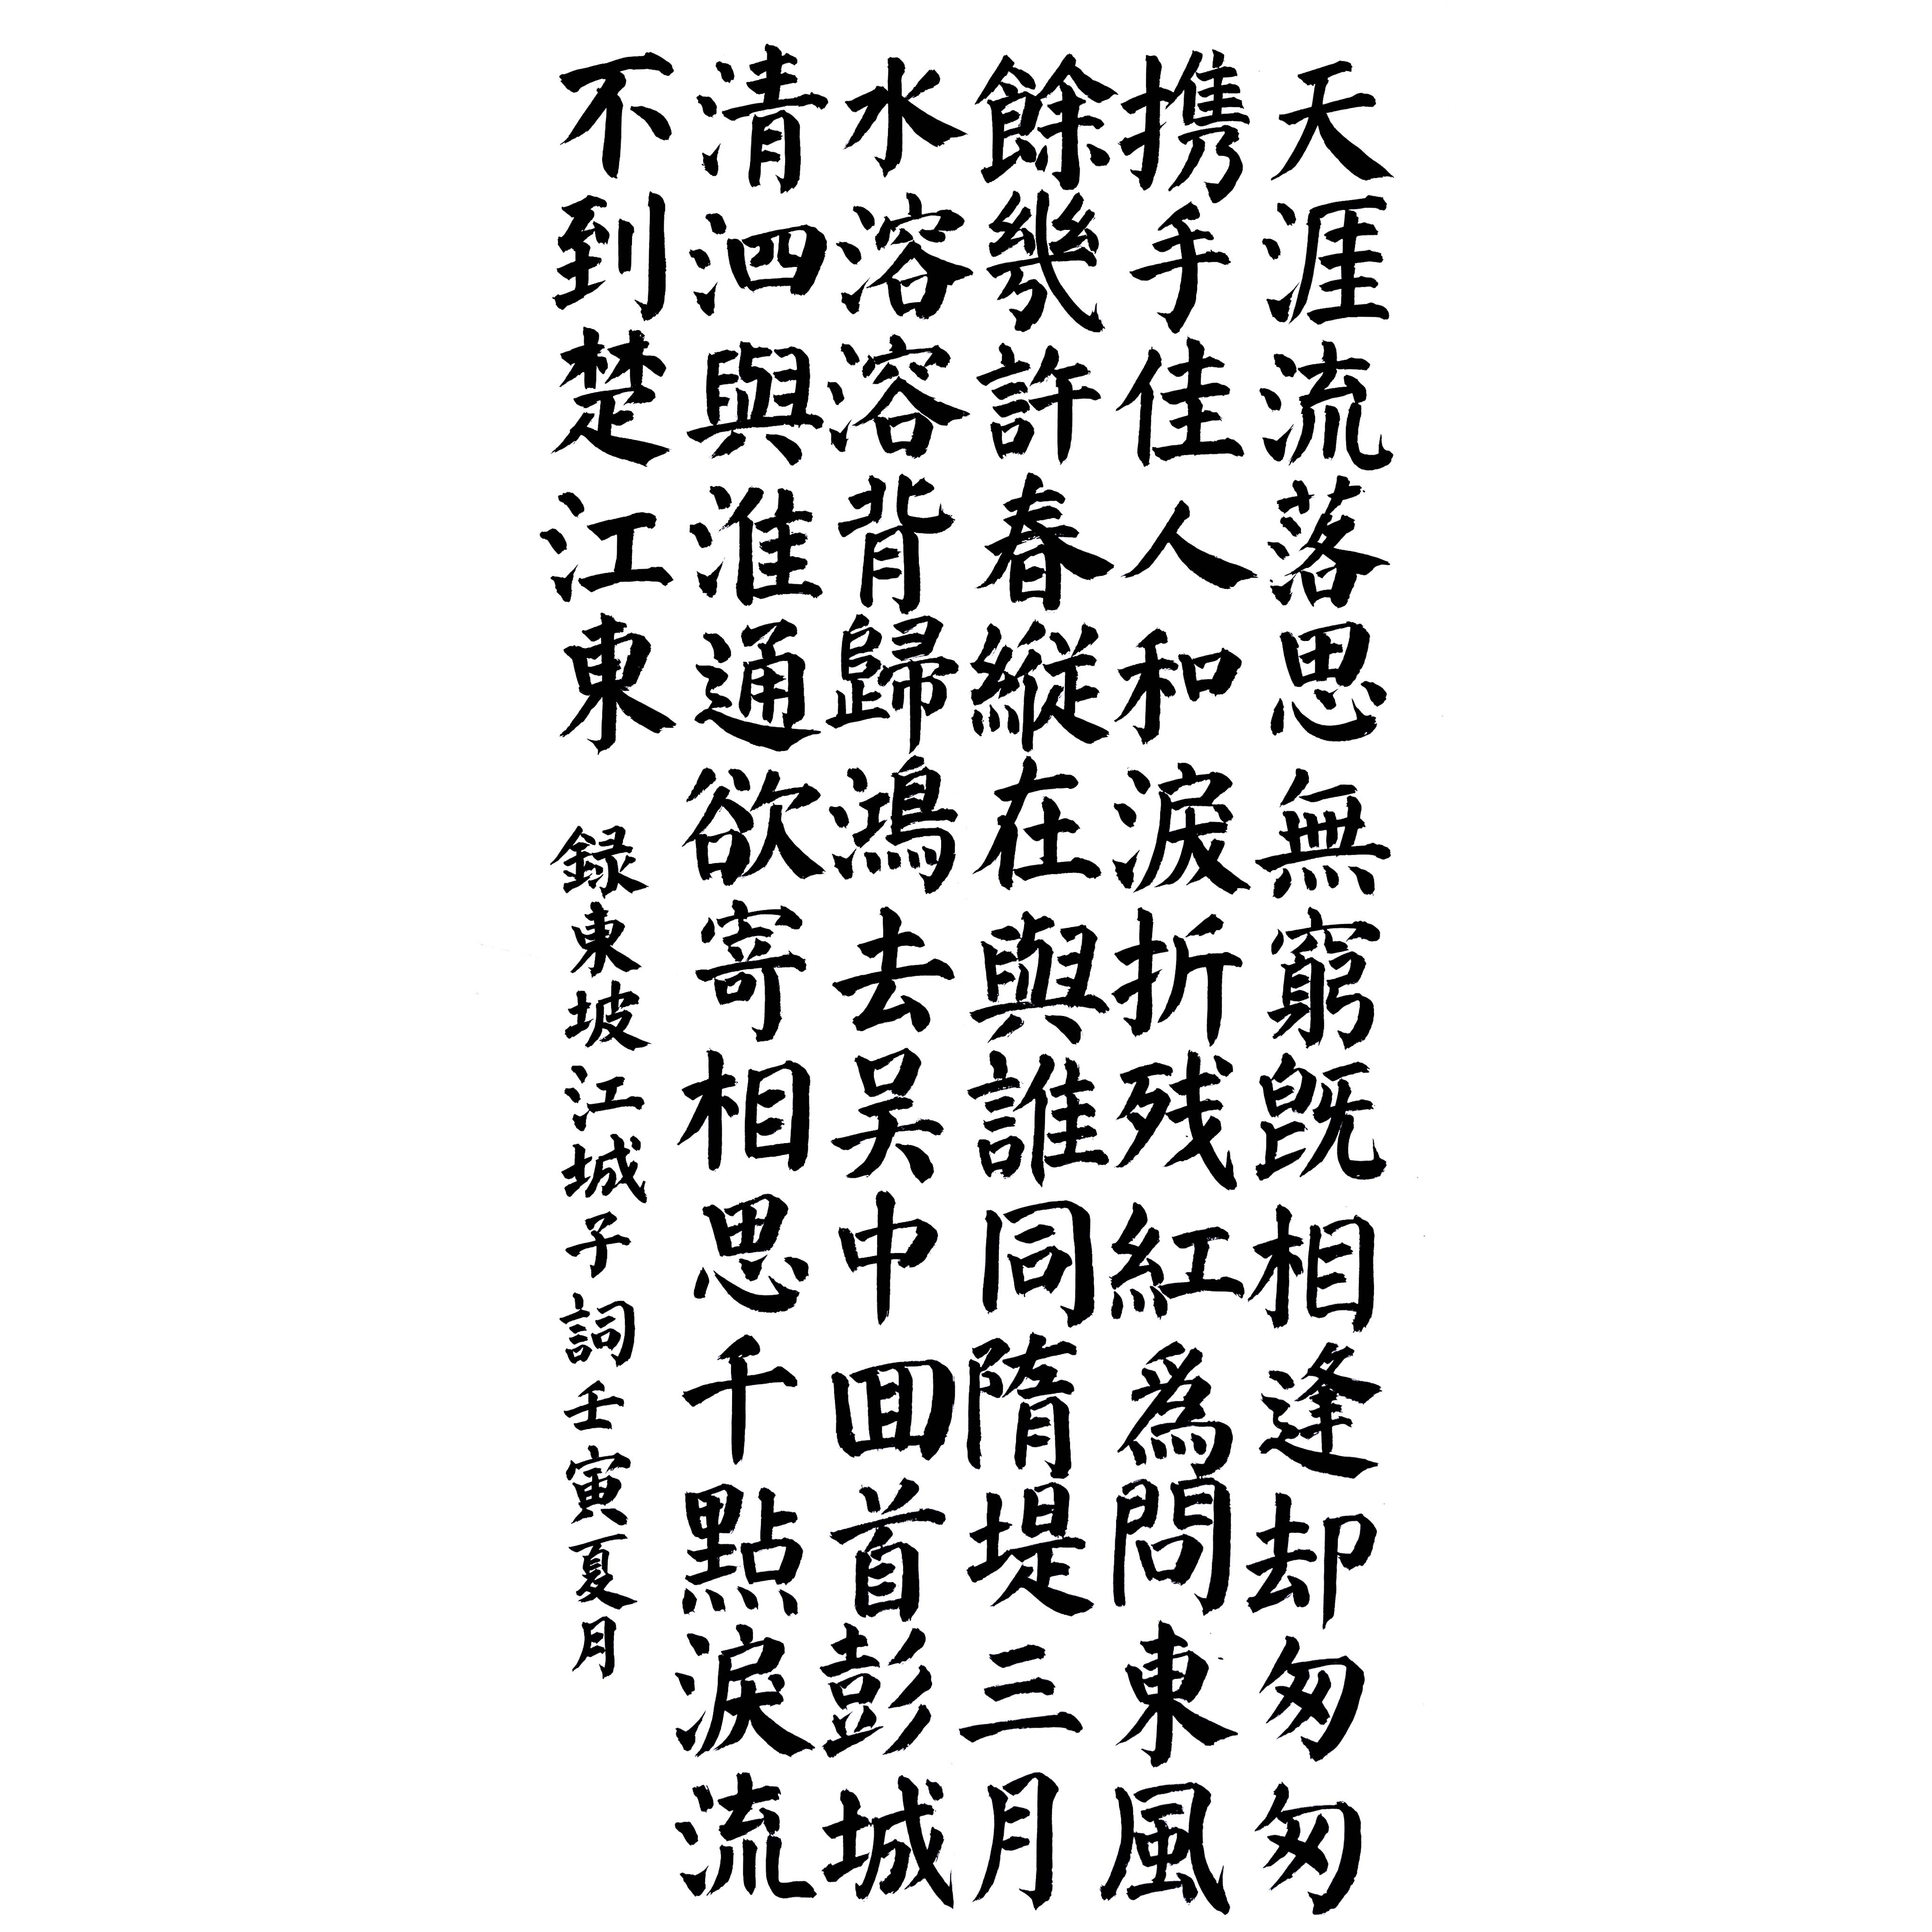 天涯流落思無窮既相逢却匆匆
携手佳人和淚折残紅為問東風
餘幾許春縱在與誰同隋堤三月
水溶溶背歸鴻去吴中回首彭城
清泗與淮通欲寄相思千點淚流
不到楚江東
録東坡江城子詞壬寅夏月